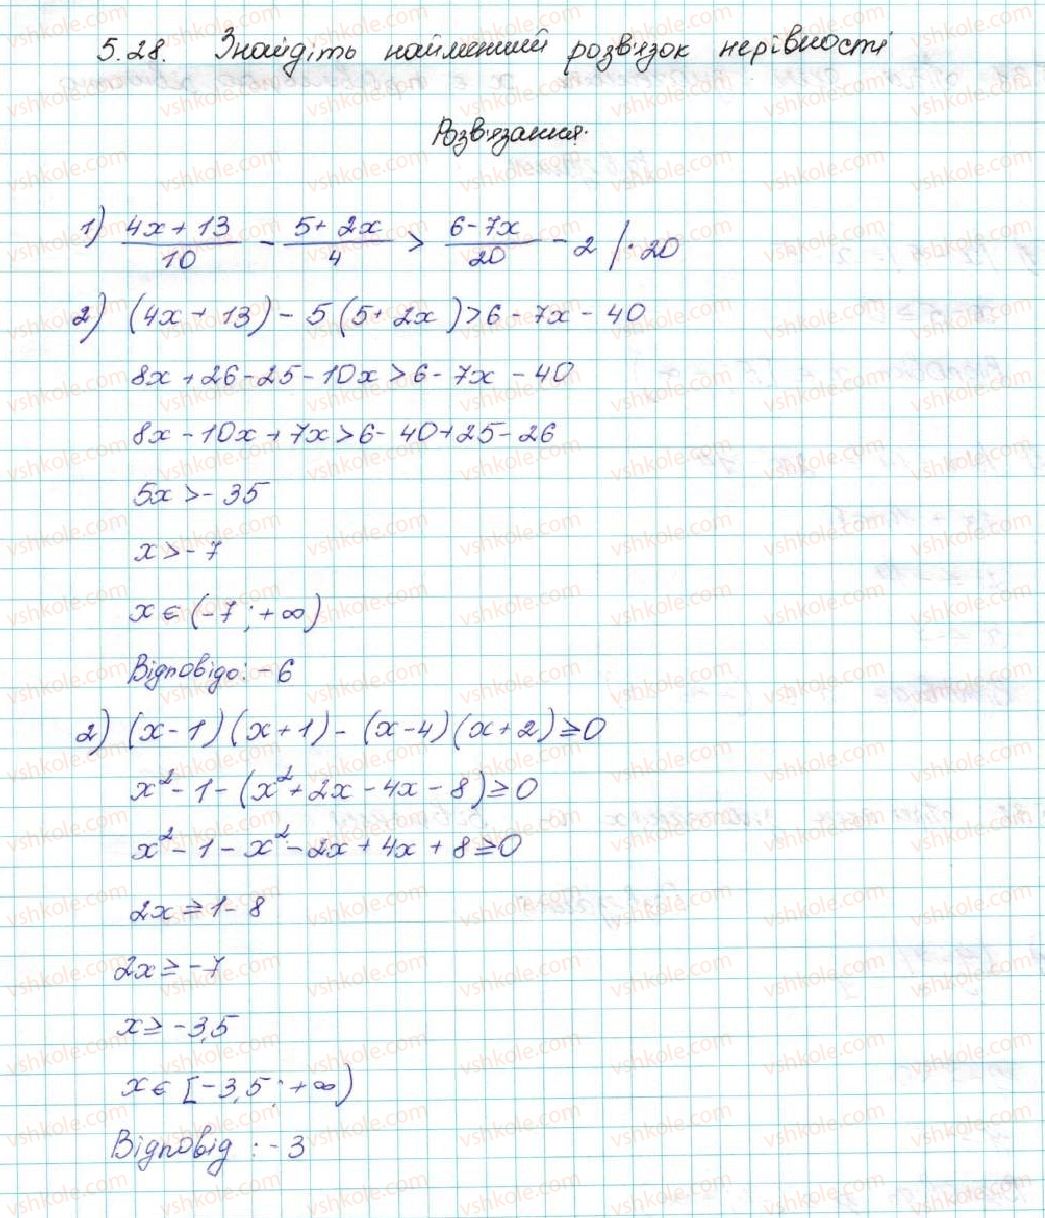 5.28. Знайдіть найменший розв'язок нерівності
Розв'язання.
1) (4x + 13)/10 - (5 + 2x)/4 > (6 - 7x)/20 - 2 / · 20
2) (4x + 13) - 5 (5 + 2x) > 6 - 7x - 40
8x + 26 - 25 - 10x > 6 - 7x - 40
8x - 10x + 7x > 6 - 40 + 25 - 26
5x > - 35
x > - 7
x ∈ (-7 ; + ∞)
Відповідо: - 6
2) (x - 1) (x + 1) - (x - 4) (x + 2) ≥ 0
x² - 1 - (x² + 2x - 4x - 8) ≥ 0
x² - 1 - x² - 2x + 4x + 8 ≥ 0
2x ≥ 1 - 8
2x ≥ - 7
x ≥ - 3,5
x ∈ [-3,5 ; + ∞)
Відповід : - 3
vshkole.com